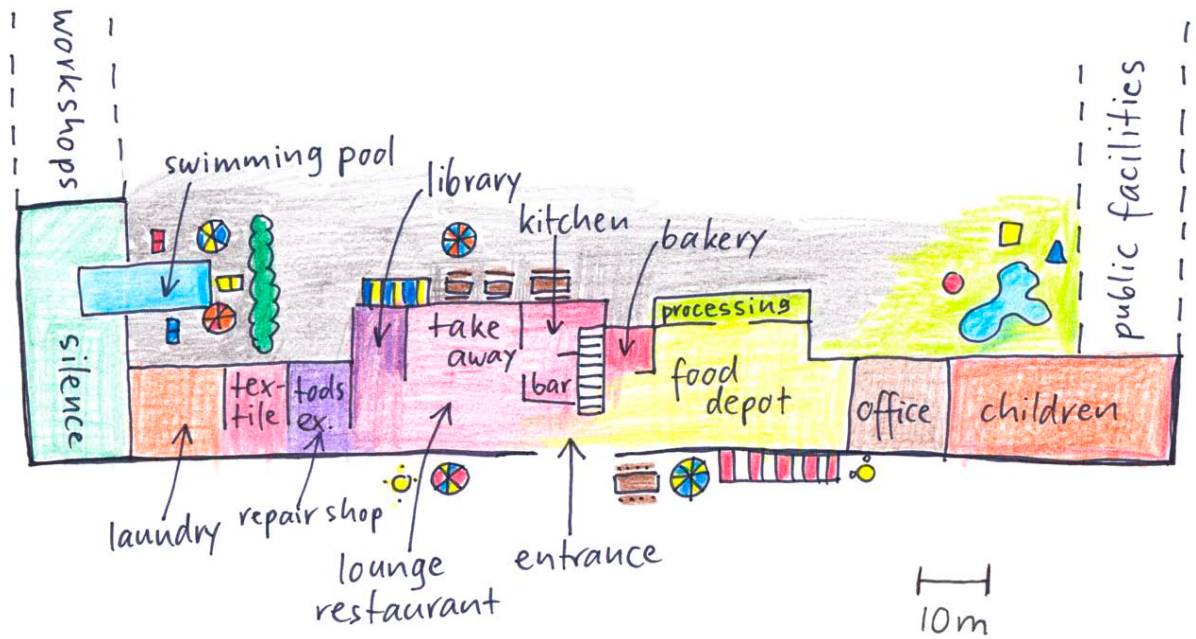 workshops
swimming pool
library
kitchen
bakery
public facilities
processing
take
away
silence
tex-
tile
tools
ex.
bar
food
depot
office
children
laundry
repair shop
lounge
restaurant
entrance
10m